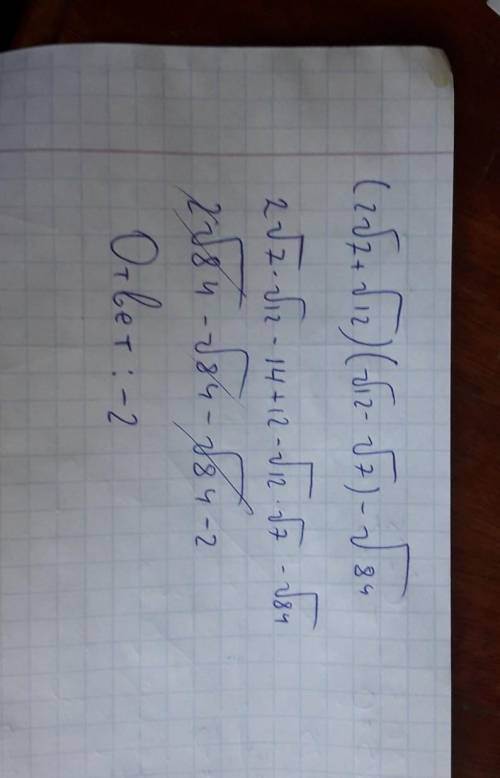 (2√7+√12)(√12-√7)-√84
2√7·√12-14+12-√12·√7-√84
2√84-√84-√84-2
Ответ:-2